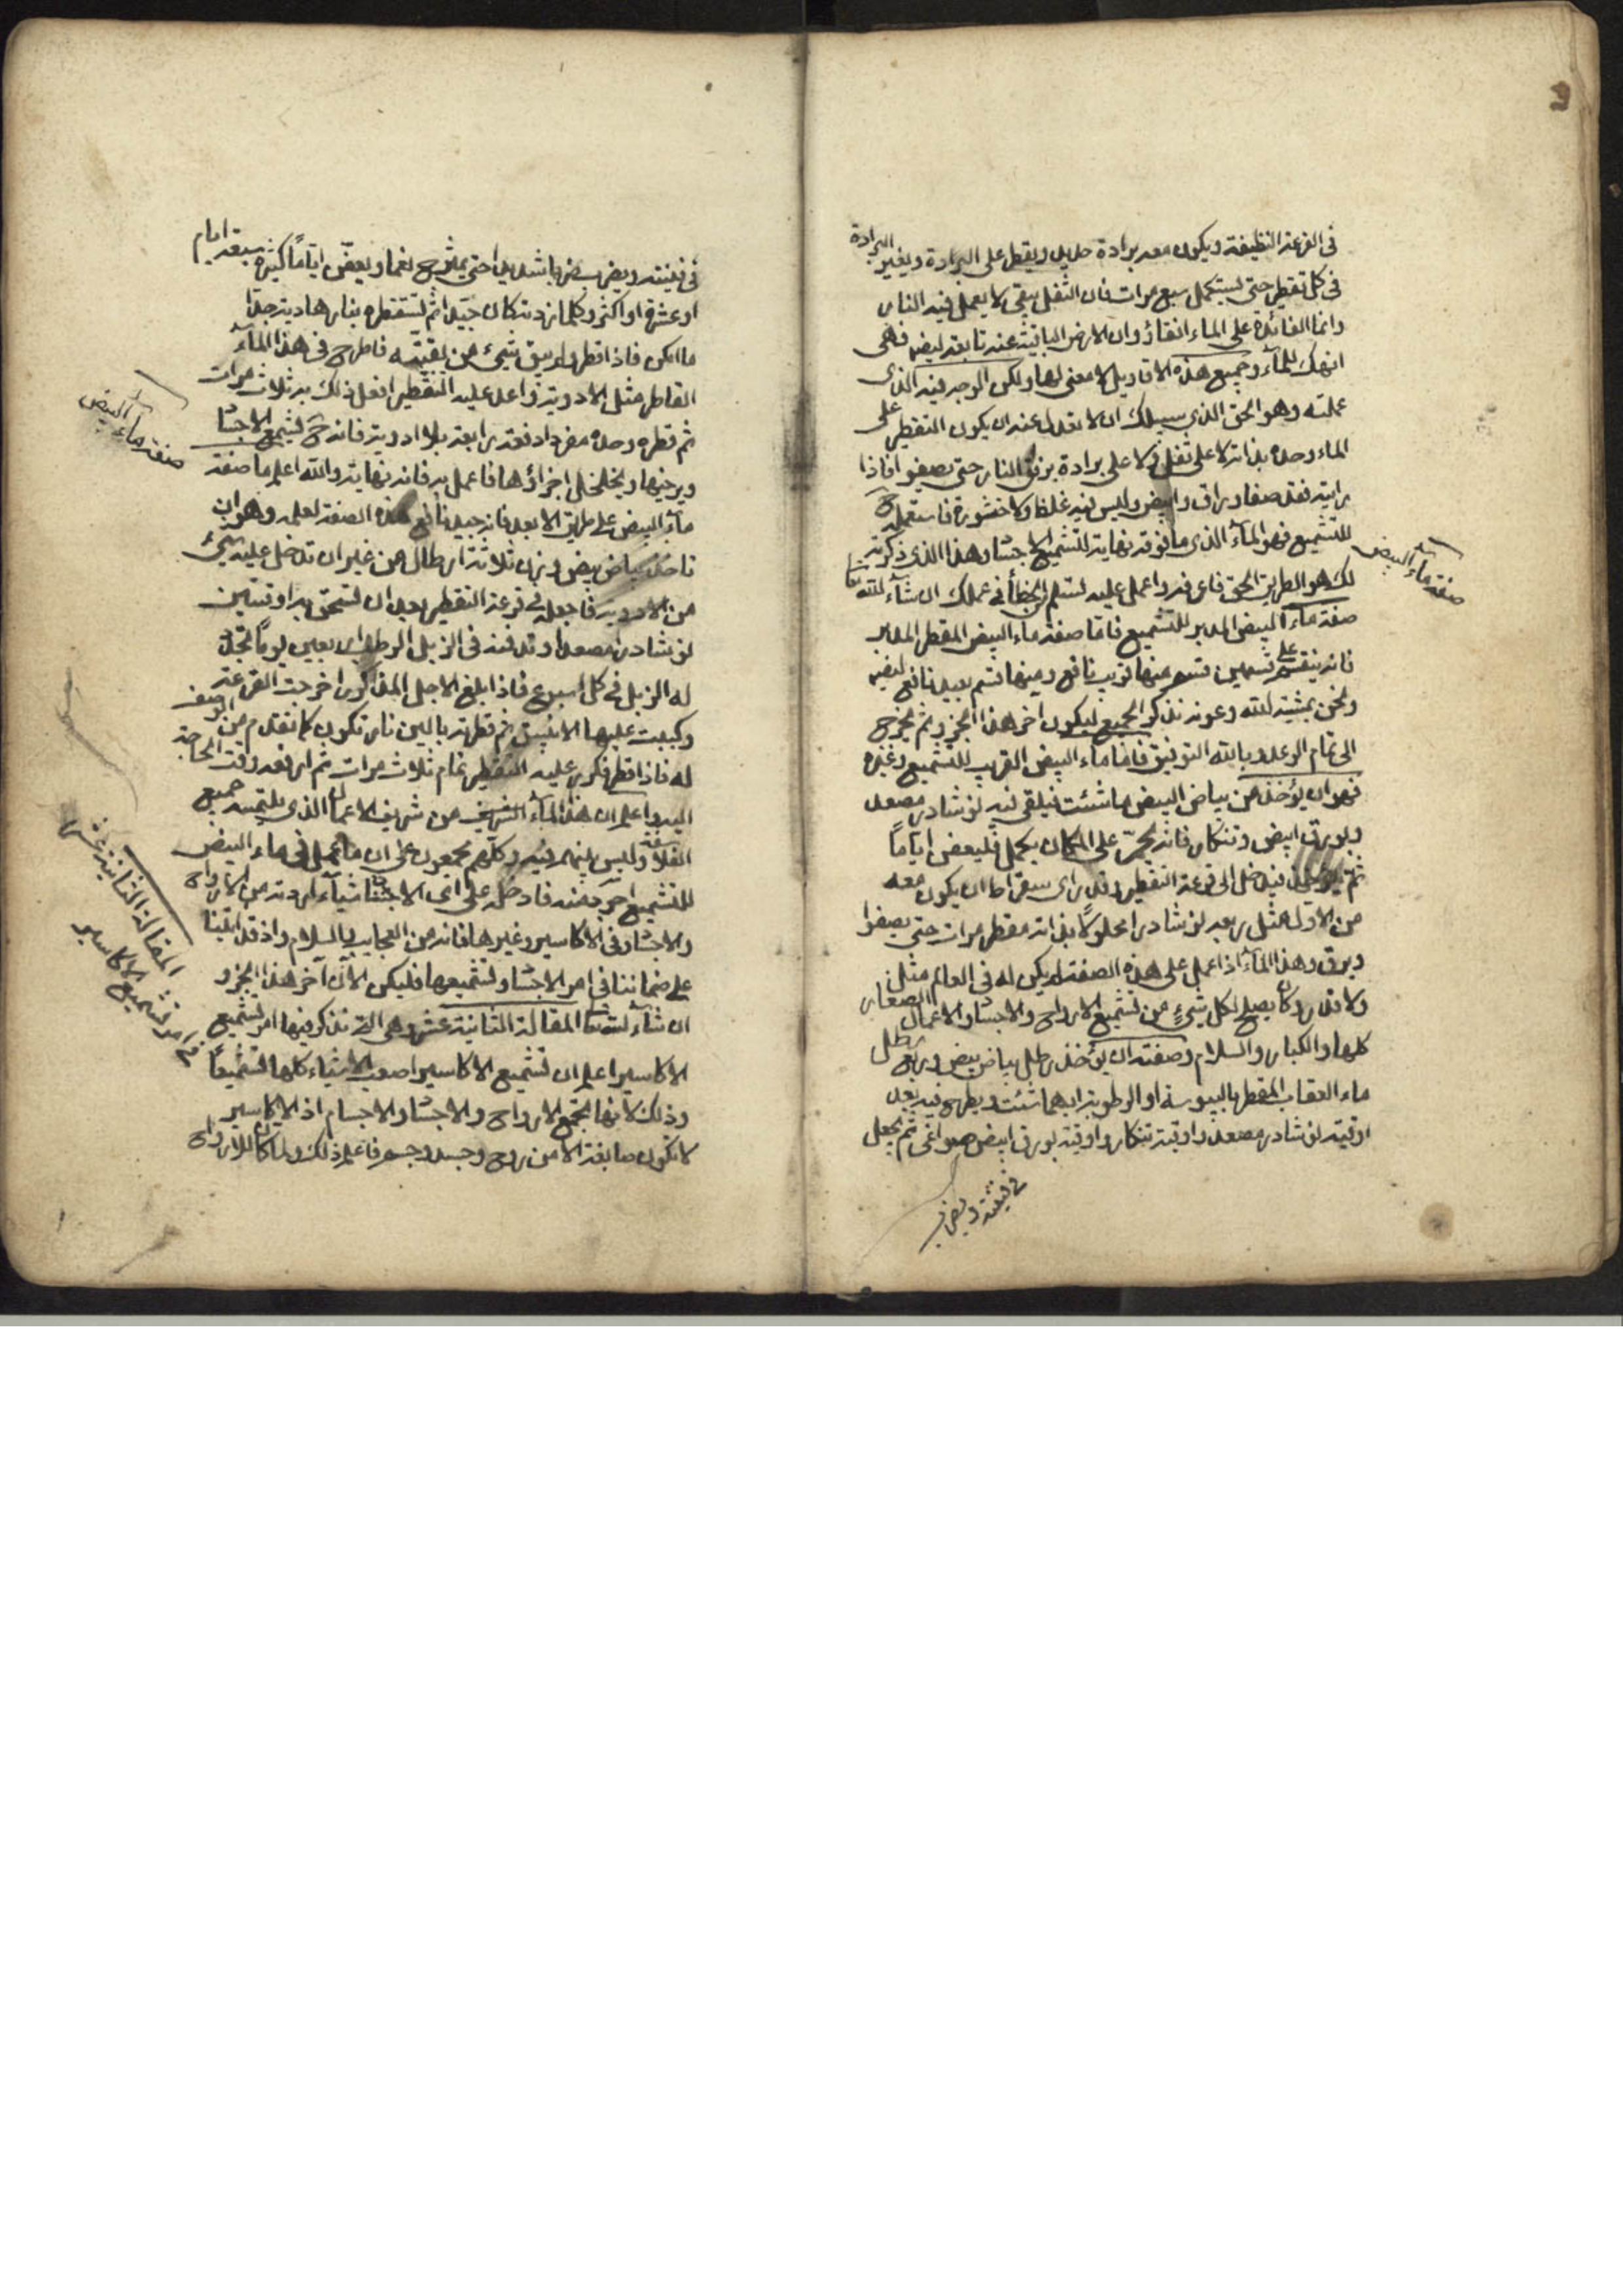 في القرعة النظيفة ويكون معه برادة حديد ويقطر على البرادة ويغير البرادة
في كل تقطير حتى يستكمل سبع مرات فان الثفل يبقى لا يعمل فيه النار
وانما الفائدة على الماء وان الارض الباقية عنه فهي
للماء وجميع هذه الاقاويل لا معنى لها ولكن الوجه فيه الذي
عملته وهو الحق الذي سبيلك ان لا تعدل عنه ان يكون التقطير على
الماء وحده بذاته لا على ثفل ولا على برادة برفق النار حتى يصفو فاذا
رايته فقد صفا وراق وابيض وليس فيه غلظ ولا خشورة فاستعمله ح
للتشميع فهو الماء الذي ما فوقه نهاية لتشميع الاجساد وهذا الذي ذكرته
لك هو الطريق الحق فاعرفه واعمل عليه لتسلم من الخطأ في عملك ان شاء الله تعا
صفة ماء البيض
صفة ماء البيض المدبر للتشميع فاما صفة ماء البيض المقطر المدبر
فانه ينقسم على قسمين قسم منها قريب نافع ومنها قسم بعيد نافع ايضا
ونحن بمشية الله وعونه نذكر الجميع ليكون اخر هذا الجزو ثم نخرج
الى تمام الوعد وبالله التوفيق فاما ماء البيض القريب للتشميع وغيره
فهو ان يؤخذ من بياض البيض ما شئت فيلقى فيه نوشادر مصعد
وبورق ابيض وتنكار فانه على المكان يكمل فليعفن اياماً
ثم فيدخل الى قرعة التقطير وقد راى سقراط ان يكون معه
من الاول مثل ربعه نوشادرا محلولاً بذاته مقطر مرات حتى يصفوا
ويرق وهذا الماء اذا عمل على هذه الصفة لم يكن له في العالم مثل
ولا قدر وكان يصلح لكل شيء من تشميع الارواح والاجساد والاعمال الصغار
كلها والكبار والسلام وصفته ان يؤخذ رطل بياض بيض وربع رطل
ماء العقاب المقطر باليبوسة او الرطوبة ايهما شئت ويطرح فيه بعد
اوقية نوشادر مصعد واوقية تنكار واوقية بورق ابيض صواغي ثم يجعل
في قنينة ويضرب
في قنينة ويضرب ضربا شديدا حتى يمتزج نعما ويعفن اياماً كثيرة سبعة ايام
او عشرة او اكثر وكلما زدته كان جيدا ثم تستقطره بنار هادية جدا
ما امكن فاذا قطر ولم يبق شيء من بقيته فاطرح في هذا الماء
القاطر مثل الادوية واعد عليه التقطير افعل ذلك به ثلاث مرات
ثم قطره وحده مفردا دفعة رابعة بلا ادوية فانه ح يشمع الاجساد
ويرخيها ويخلخل اجزاؤها فاعمل به فانه نهاية والله اعلم صفة
صفة ماء البيض
ماء البيض على طريق الابعد فانه جيد نافع هذه الصفة لعله وهو ان
تاخذ بياض بيض وزن ثلاثة ارطال من غير ان تدخل عليه شيء
من الادوية فاجعله في قرعة التقطير بعد ان تسحق به اوقيتين
نوشادر مصعد وتدفنه في الزبل الرطب اربعين يوماً تجدد
له الزبل في كل اسبوع فاذا بلغ الاجل المذكور اخرجت القرعة
وركبت عليها الانبيق ثم قطرته بالين نار تكون كما تقدم من الوصف
له فاذا قطر فكرر عليه التقطير تمام ثلاث مرات ثم ارفعه وقت الحاجة
اليه واعلم ان هذا الماء الشريف من شريف الاعمال الذي يلتمسه جميع
الفلاسفة وليس بينهم فيه وكلهم مجمعون على ان ما عمل في ماء البيض
للتشميع اجود منه فادخله على اي الاجساد شياء اردته من الارواح
والاجساد وفي الاكاسير وغيرها فانه من العجايب والسلام واذ قد اتينا
على ضماننا في امر الاجساد وتشميعها فليكن الآن آخر هذا الجزو
ان شاء الله تعا المقالة الثانية عشر وهي التي نذكر فيها امر تشميع
المقالة الثانية عشر
في امر تشميع الاكاسير
الاكاسير اعلم ان تشميع الاكاسير اصعب الاشياء كلها تشميعاً
وذلك لانها تجمع الارواح والاجساد والاجسام اذ الاكاسير
لا تكون صابغة الا من روح وجسد وجسم فاعلم ذلك ولما كان للارواح